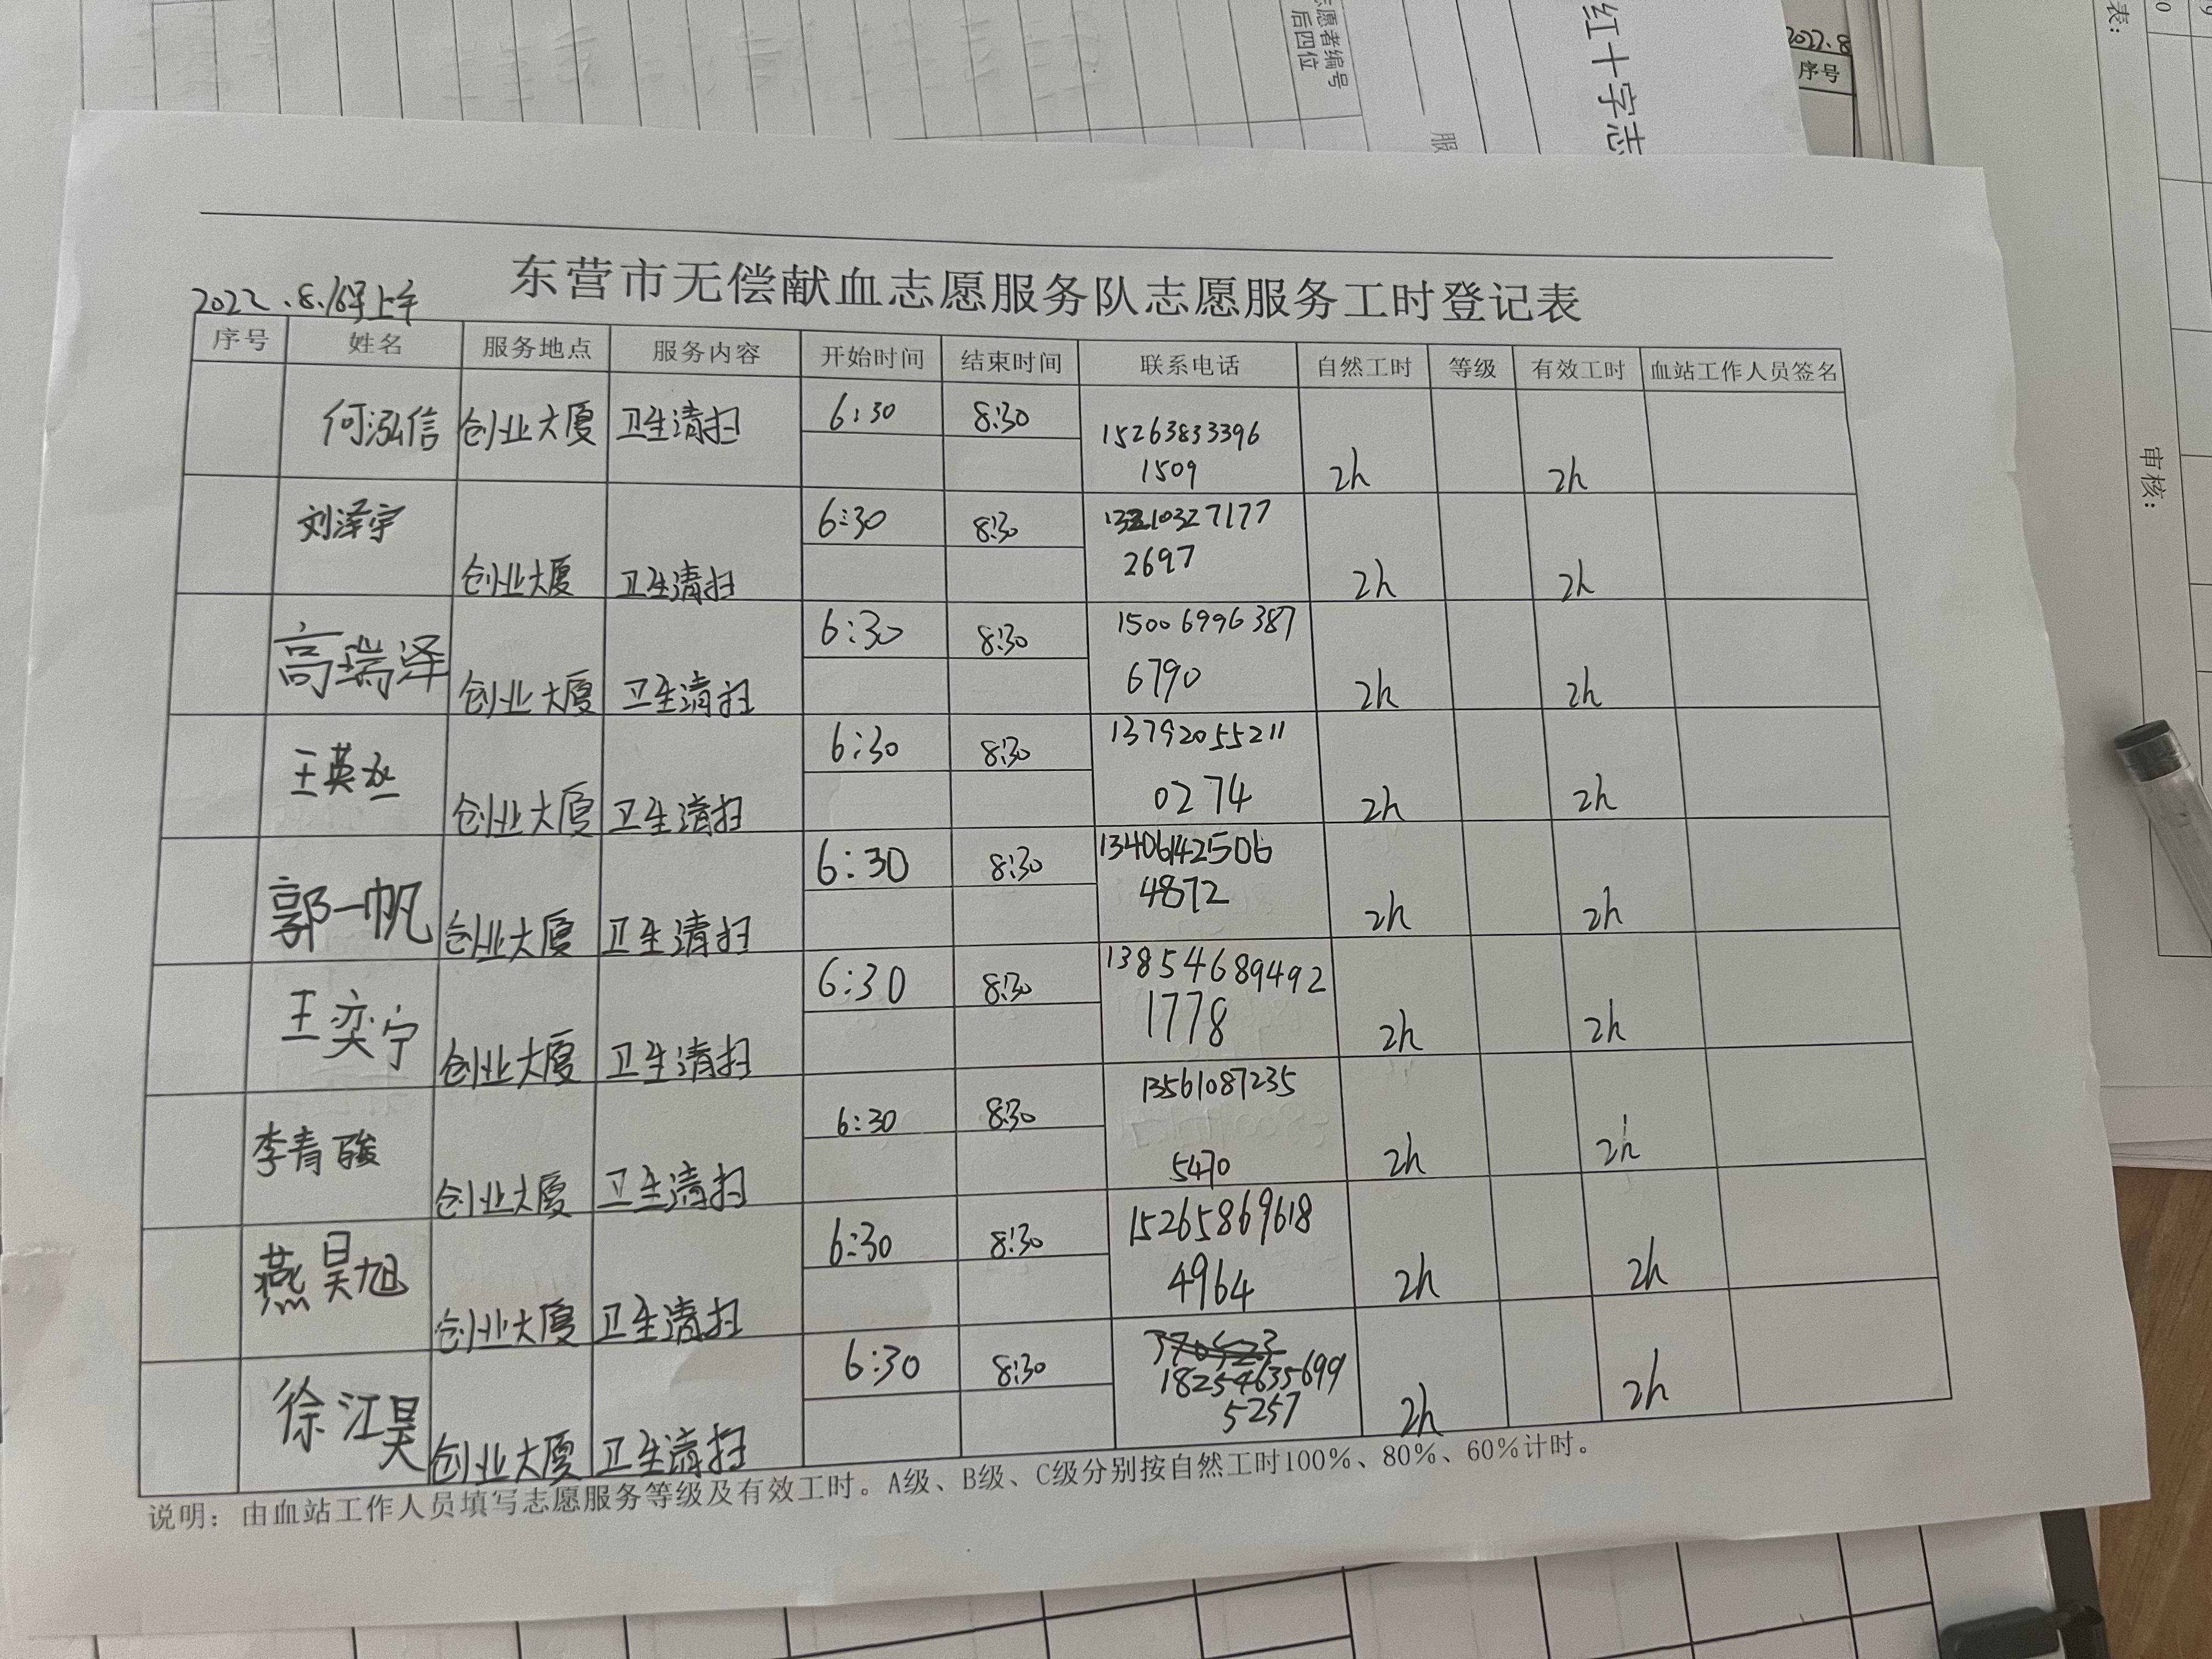 志愿者编号
后四位
服
红十字志
2022.8
序号
表:
审核:
东营市无偿献血志愿服务队志愿服务工时登记表
2022.8.16号上午
序号 姓名 服务地点 服务内容 开始时间 结束时间 联系电话 自然工时 等级 有效工时 血站工作人员签名
何泓信 创业大厦 卫生清扫 6:30 8:30 15263833396
1509 2h 2h
刘泽宇 6:30 8:30 10327177
创业大厦 卫生清扫 2697 2h 2h
高瑞泽 6:30 8:30 15006996387
创业大厦 卫生清扫 6790 2h 2h
王英丞 6:30 8:30 13792055211
创业大厦 卫生清扫 0274 2h 2h
郭一帆 6:30 8:30 13406142506
创业大厦 卫生清扫 4872 2h 2h
王奕宁 6:30 8:30 13854689492
创业大厦 卫生清扫 1778 2h 2h
李青骏 6:30 8:30 13561087235
创业大厦 卫生清扫 5470 2h 2h
燕昊旭 6:30 8:30 15265869618
创业大厦 卫生清扫 4964 2h 2h
徐江昊 6:30 8:30 18254635699
创业大厦 卫生清扫 5257 2h 2h
说明：由血站工作人员填写志愿服务等级及有效工时。A级、B级、C级分别按自然工时100%、80%、60%计时。